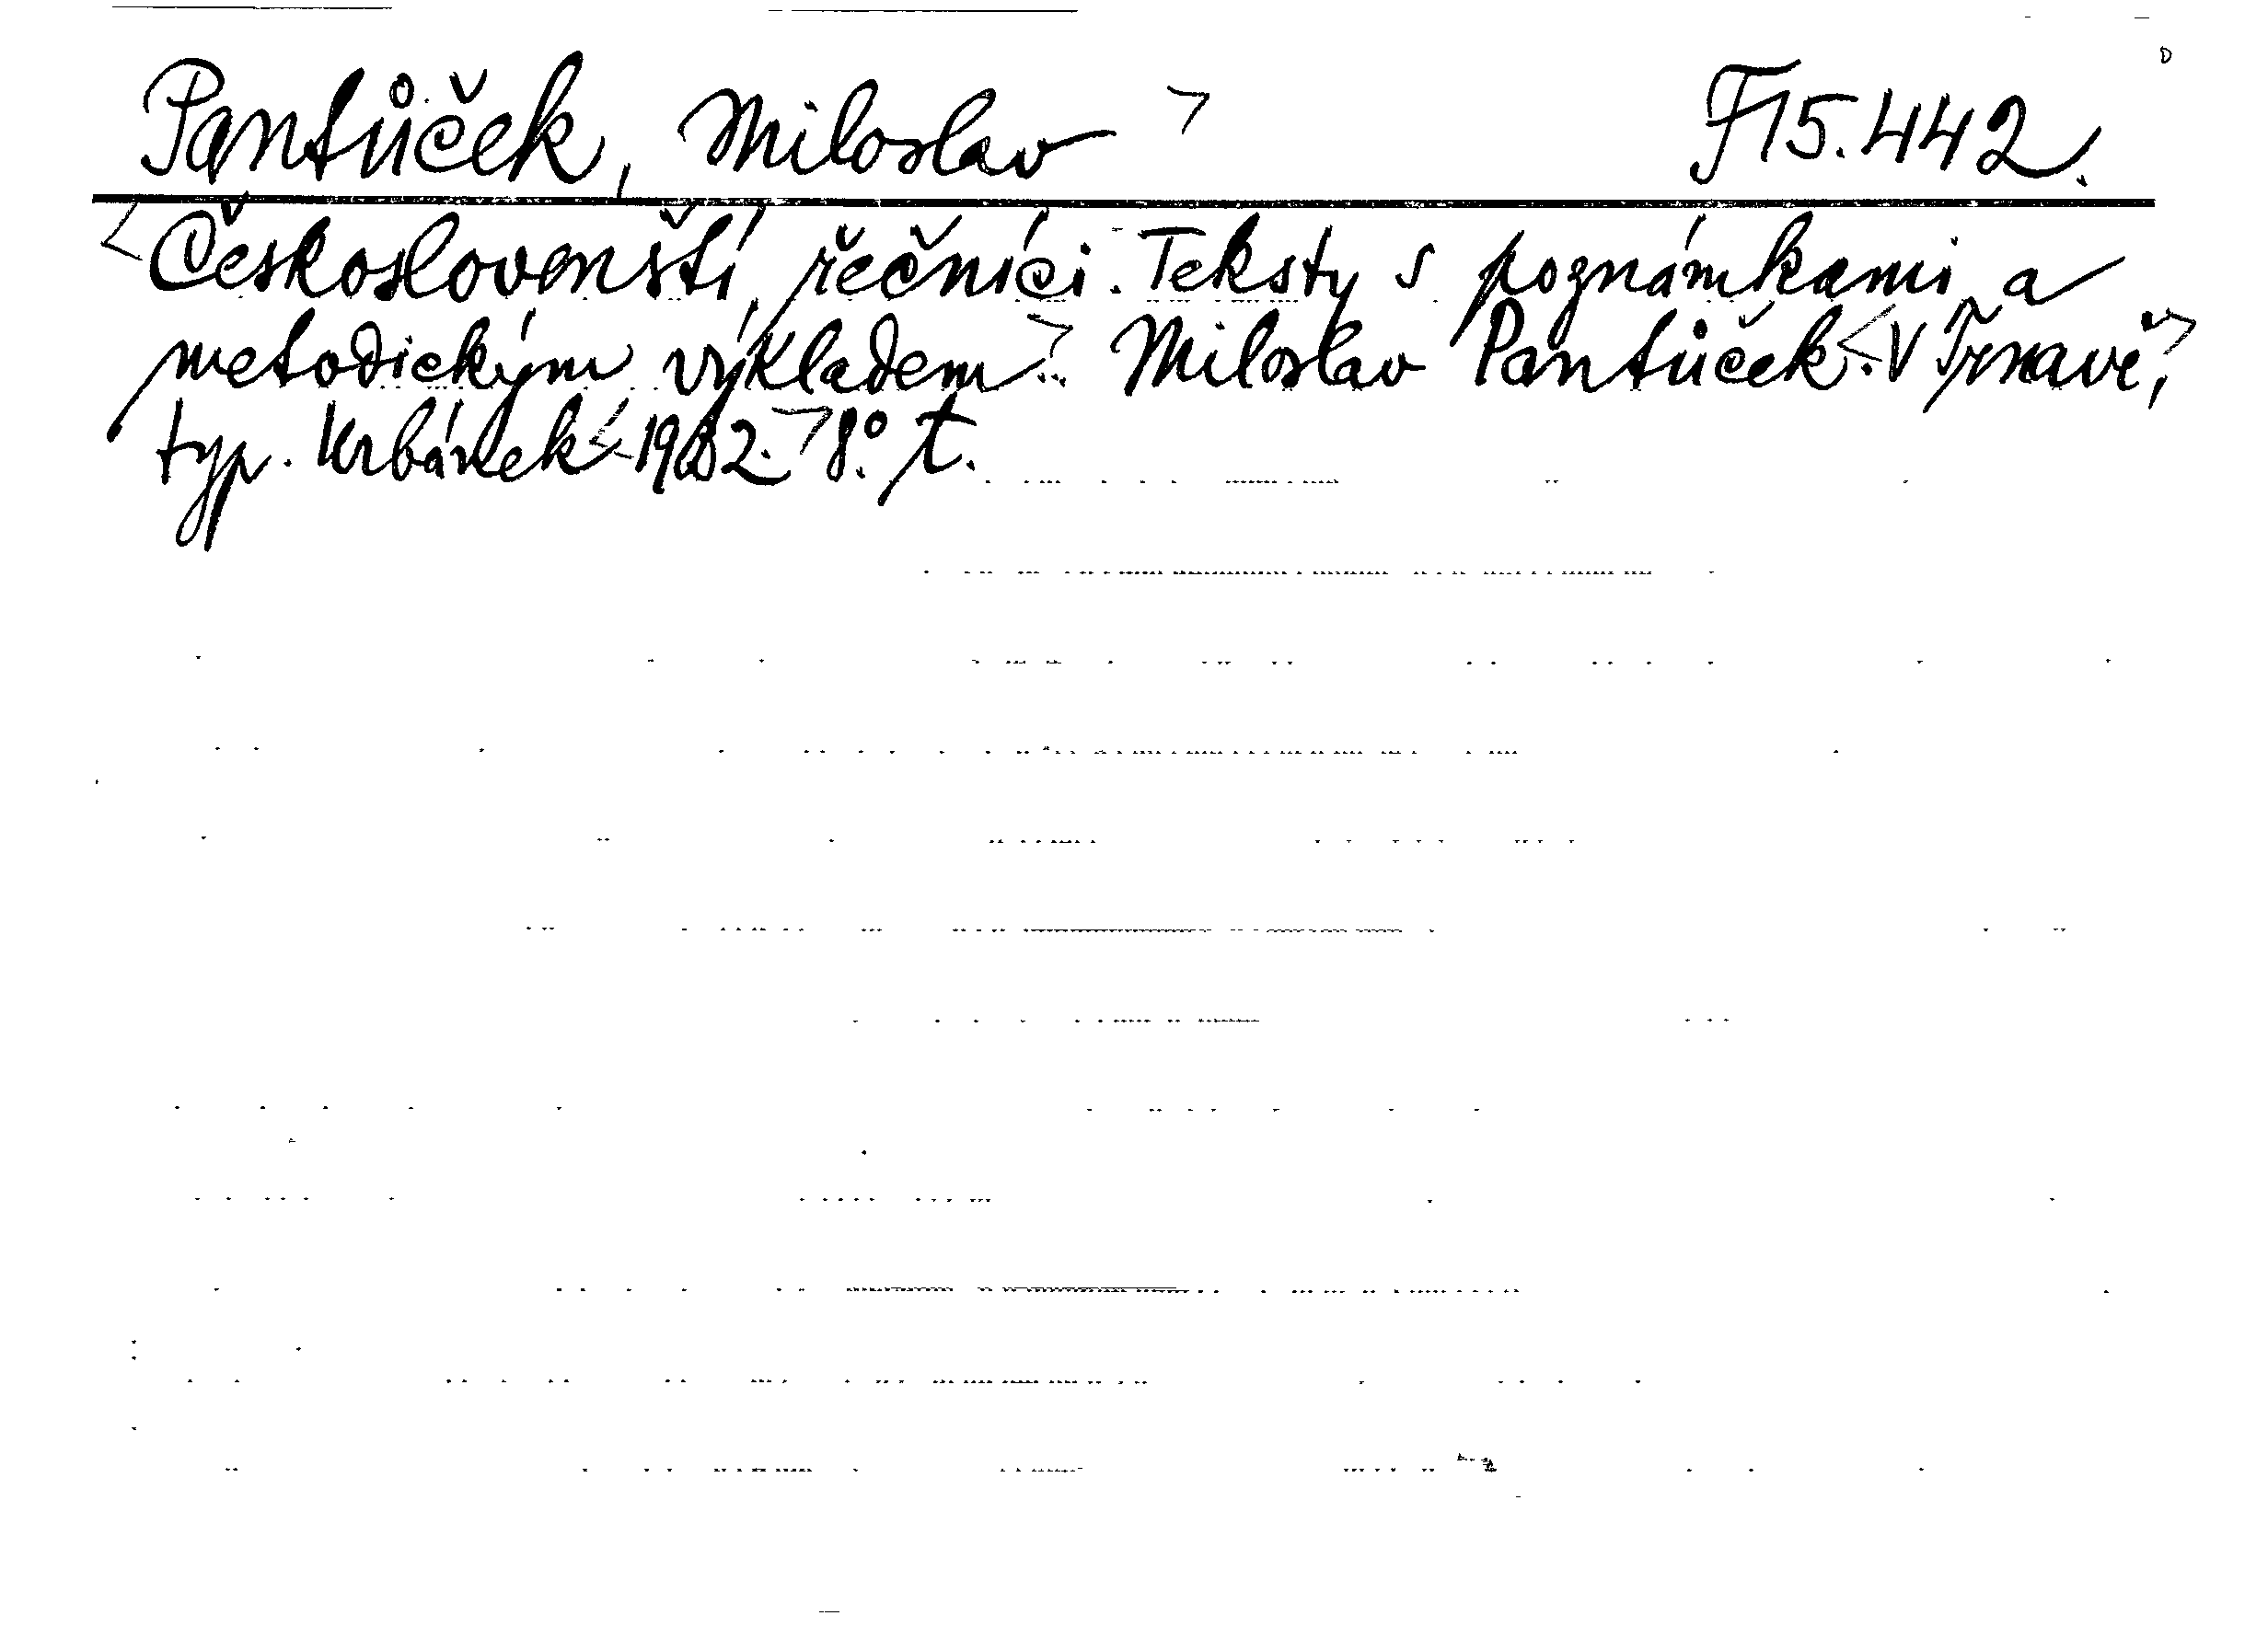 Pantůček, Miloslav F 15.442.
Českoslovenští řečníci. Teksty s poznámkami a
metodickým výkladem. Miloslav Pantůček. V Trnavě,
typ. Urbánek 1932. 8°. t.